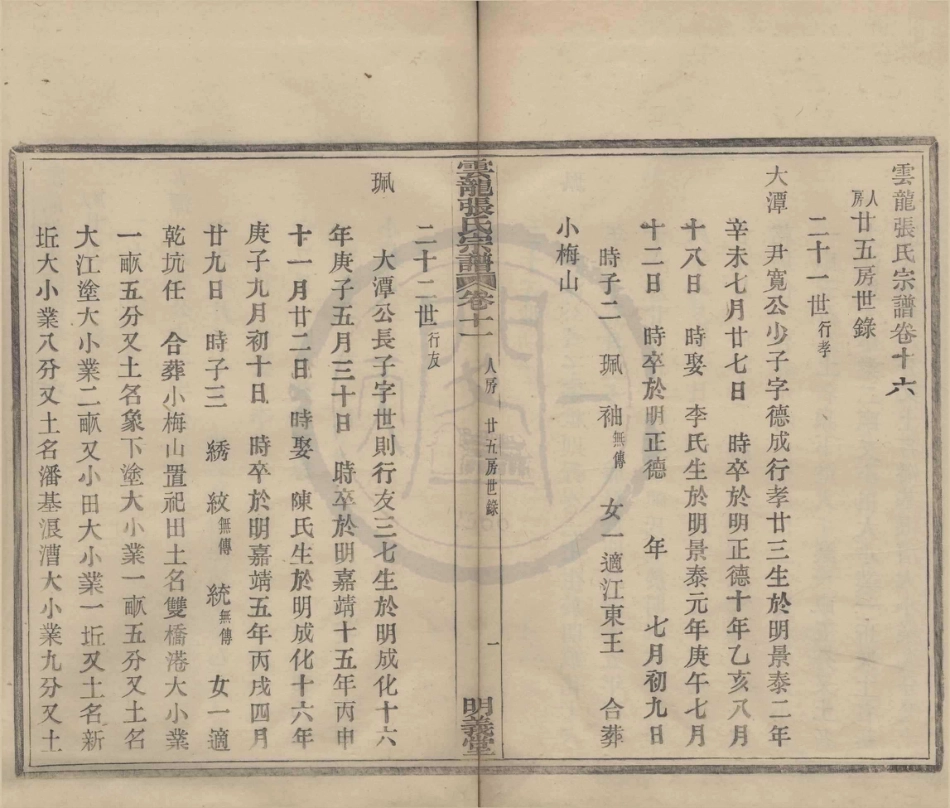 雲龍張氏宗譜卷十六
人房廿五房世錄
二十一世行孝
大潭 尹寬公少子字德成行孝廿三生於明景泰二年
辛未七月廿七日 時卒於明正德十年乙亥八月
十八日 時娶 李氏生於明景泰元年庚午七月
十二日 時卒於明正德 年 七月初九日
時子二 珮 袖無傳 女一適江東王 合葬
小梅山
雲龍張氏宗譜 卷十 人房 廿五房世錄 一 明義堂
二十二世行友
珮 大潭公長子字世則行友三七生於明成化十六
年庚子五月三十日 時卒於明嘉靖十五年丙申
十一月廿二日 時娶 陳氏生於明成化十六年
庚子九月初十日 時卒於明嘉靖五年丙戌四月
廿九日 時子三 綉 紋無傳 統無傳 女一適
乾坑任 合葬小梅山置祀田土名雙橋港大小業
一畝五分又土名象下塗大小業一畝五分又土名
大江塗大小業二畝又小田大小業一坵又土名新
坵大小業八分又土名潘基浿漕大小業九分又土